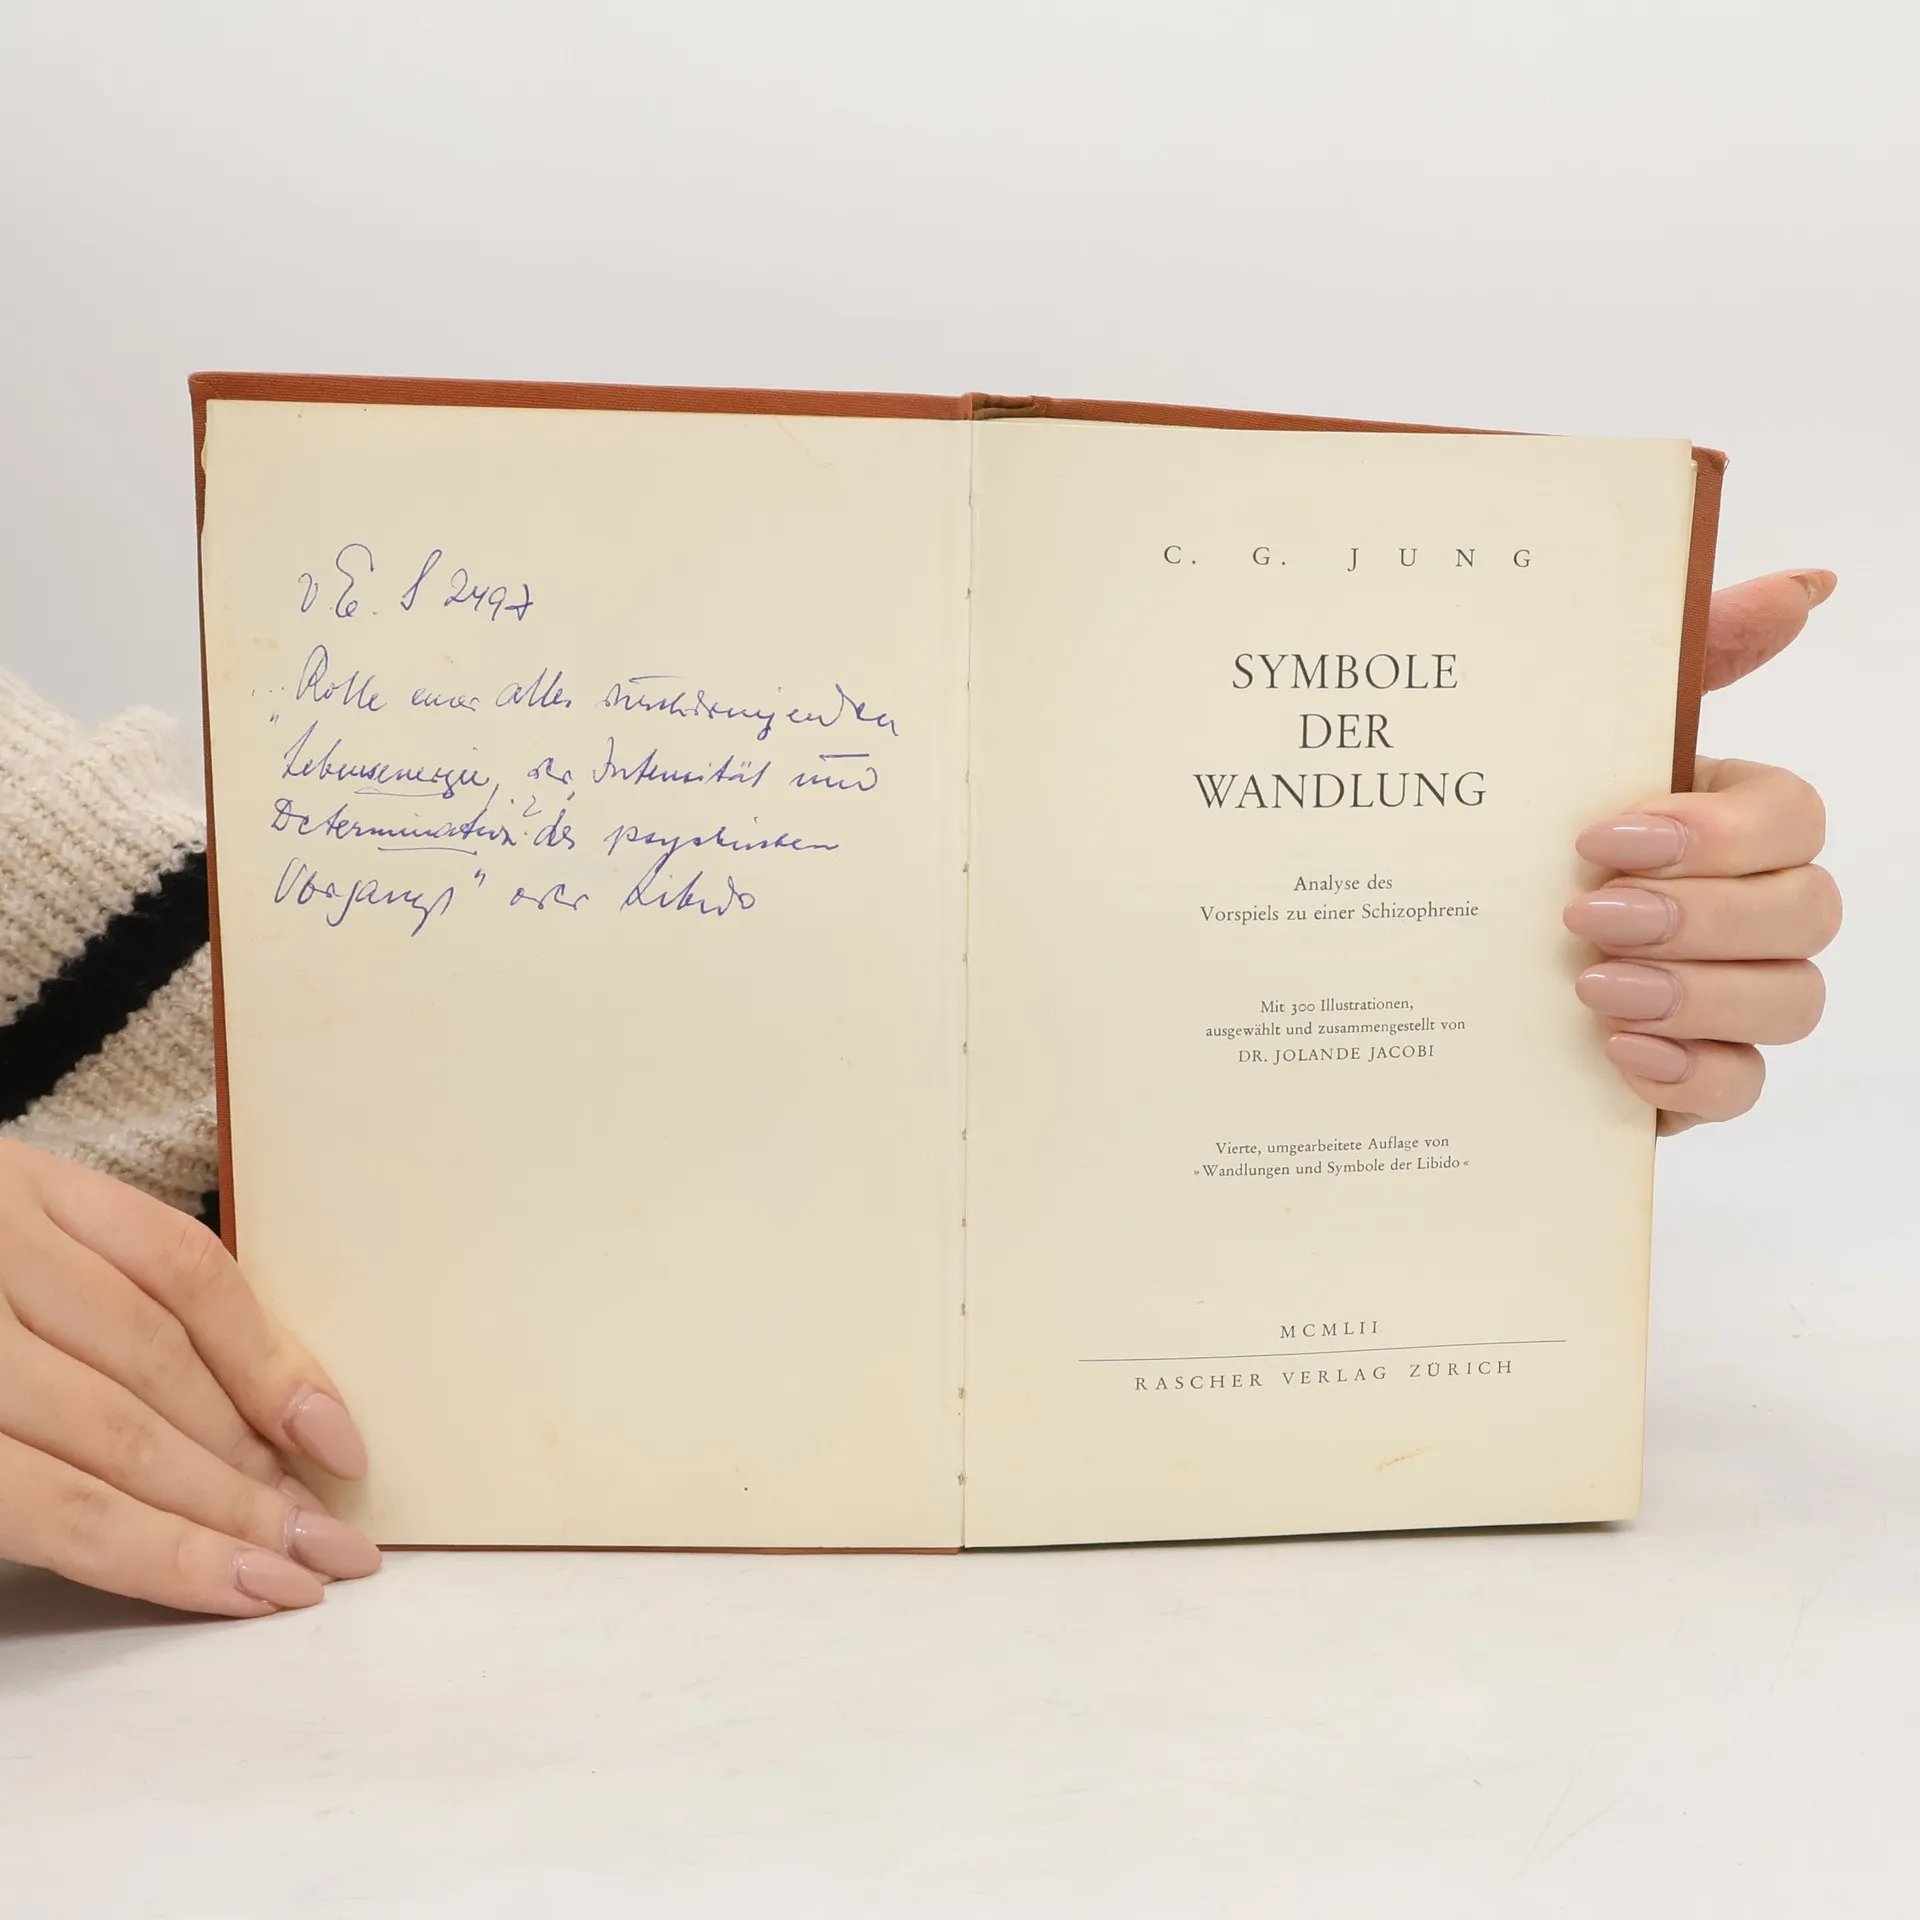 v. E. S 2497
... Rolle einer alles durchdringenden
"Lebensenergie, der Intensität und
Determination? des psychischen
Vorgangs" oder Libido
C. G. JUNG
SYMBOLE
DER
WANDLUNG
Analyse des
Vorspiels zu einer Schizophrenie
Mit 300 Illustrationen,
ausgewählt und zusammengestellt von
DR. JOLANDE JACOBI
Vierte, umgearbeitete Auflage von
»Wandlungen und Symbole der Libido«
MCMLII
RASCHER VERLAG ZÜRICH